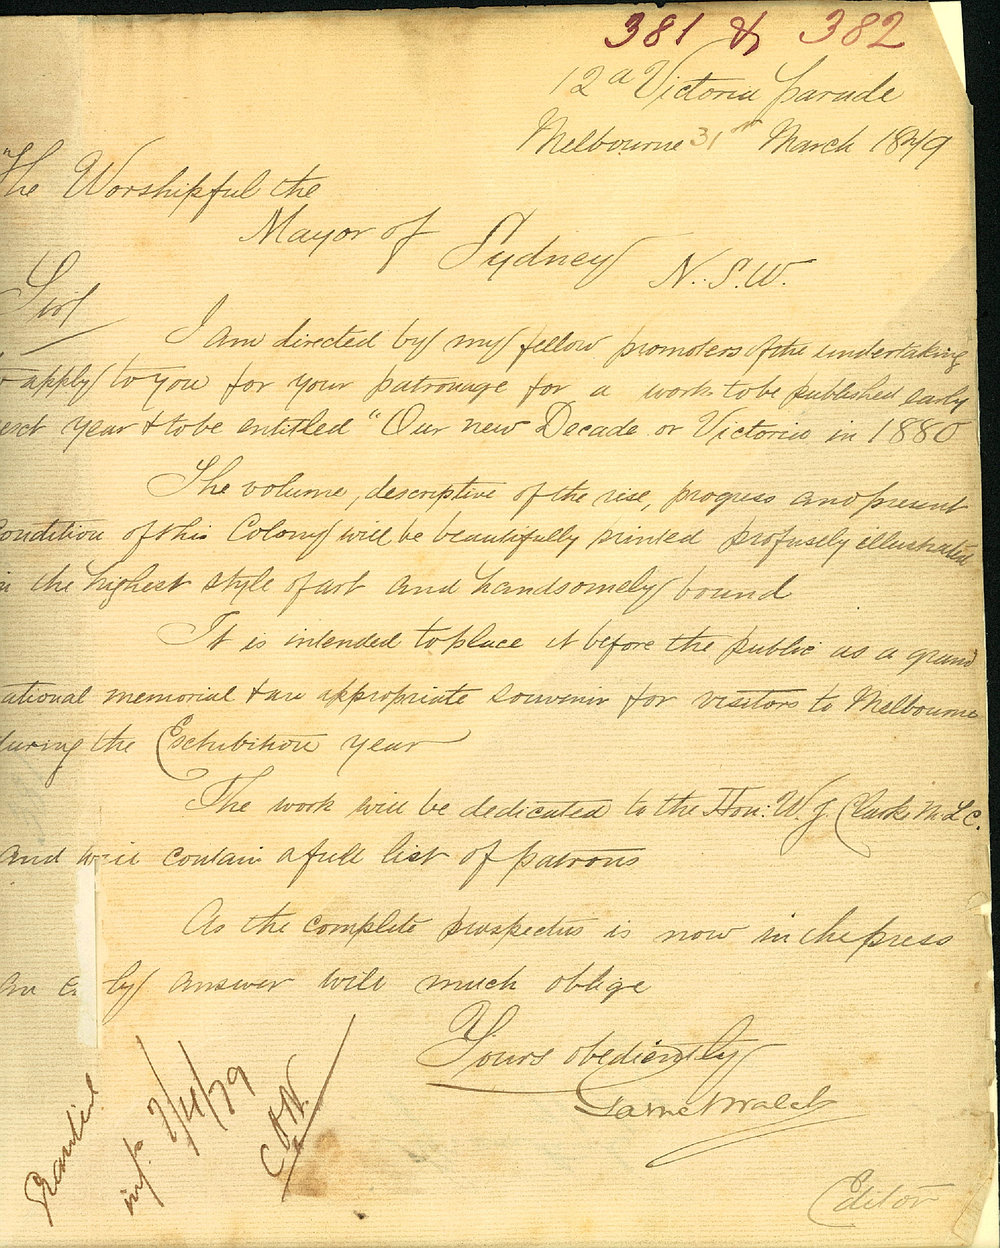 381 & 382
12a Victoria Parade
Melbourne 31st March 1879
The Worshipful the
Mayor of Sydney N.S.W.
Sir
I am directed by my fellow promoters of the undertaking
to apply to you for your patronage for a work to be published early
next year & to be entitled "Our new Decade or Victoria in 1880
The volume, descriptive of the rise, progress and present
Condition of this Colony will be beautifully printed profusely illustrated
in the highest style of art and handsomely bound
It is intended to place it before the public as a grand
national memorial & an appropriate souvenir for visitors to Melbourne
during the Exhibition year
The work will be dedicated to the Hon: W. J. Clarke M.L.C.
and will contain a full list of patrons
As the complete prospectus is now in the press
an e ly answer will much oblige
Yours obediently
Garnet Walch
Editor
inf. 7/4/79